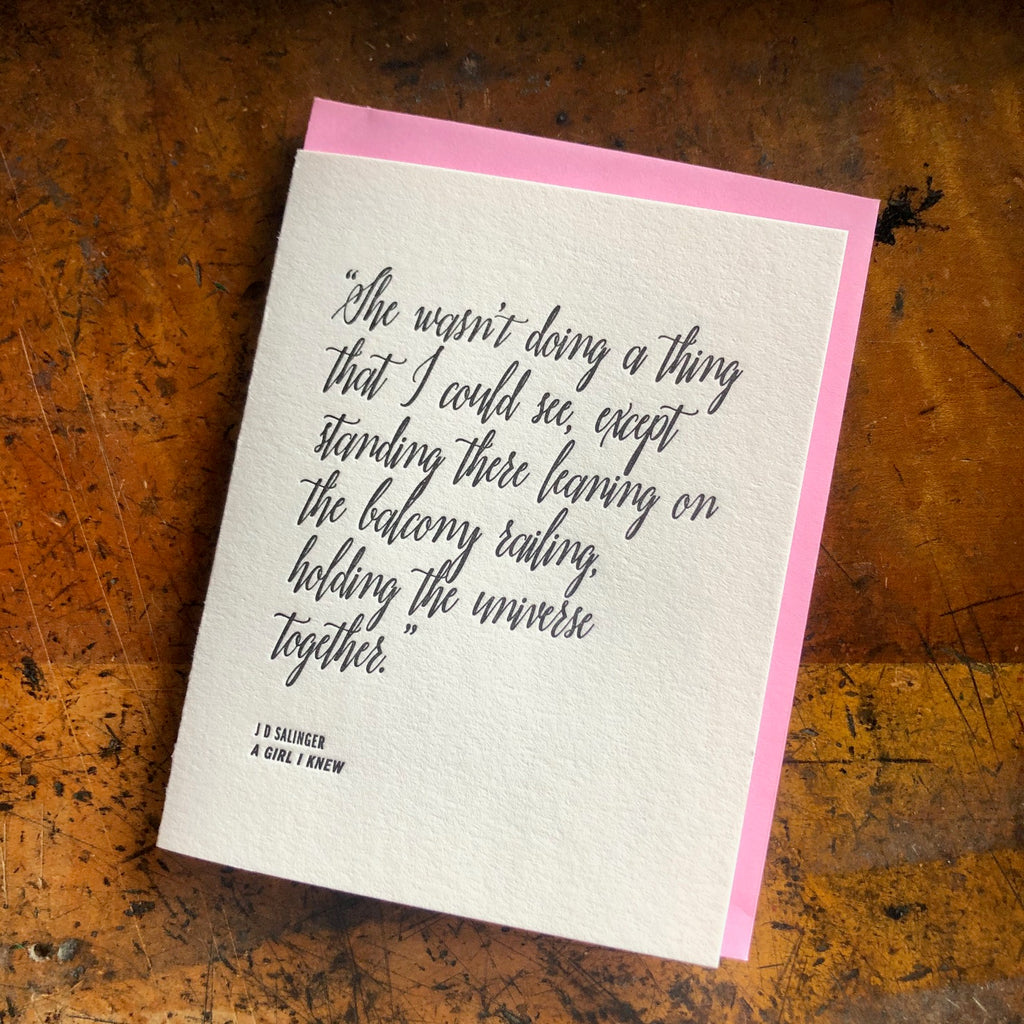 “She wasn’t doing a thing
that I could see, except
standing there leaning on
the balcony railing,
holding the universe
together.”
J D SALINGER
A GIRL I KNEW